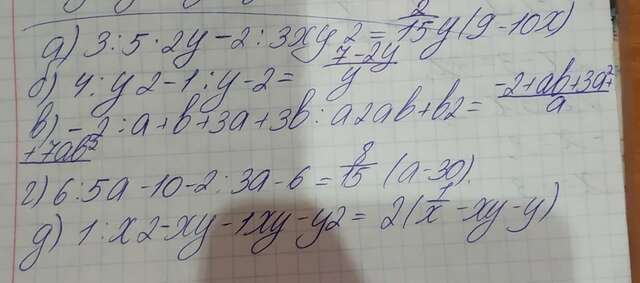 д) 3:5·2y-2:3xy2=2/15y(9-10x)
б) 4:y2-1:y-2=7-2y/y
в) -2:a+b+3a+3b:a2ab+b2=-2+ab+3a²+
+7ab²
г) 6:5a-10-2:3a-6=8/15(a-30)
д) 1:x2-xy-1xy-y2=2(1/x-xy-y)